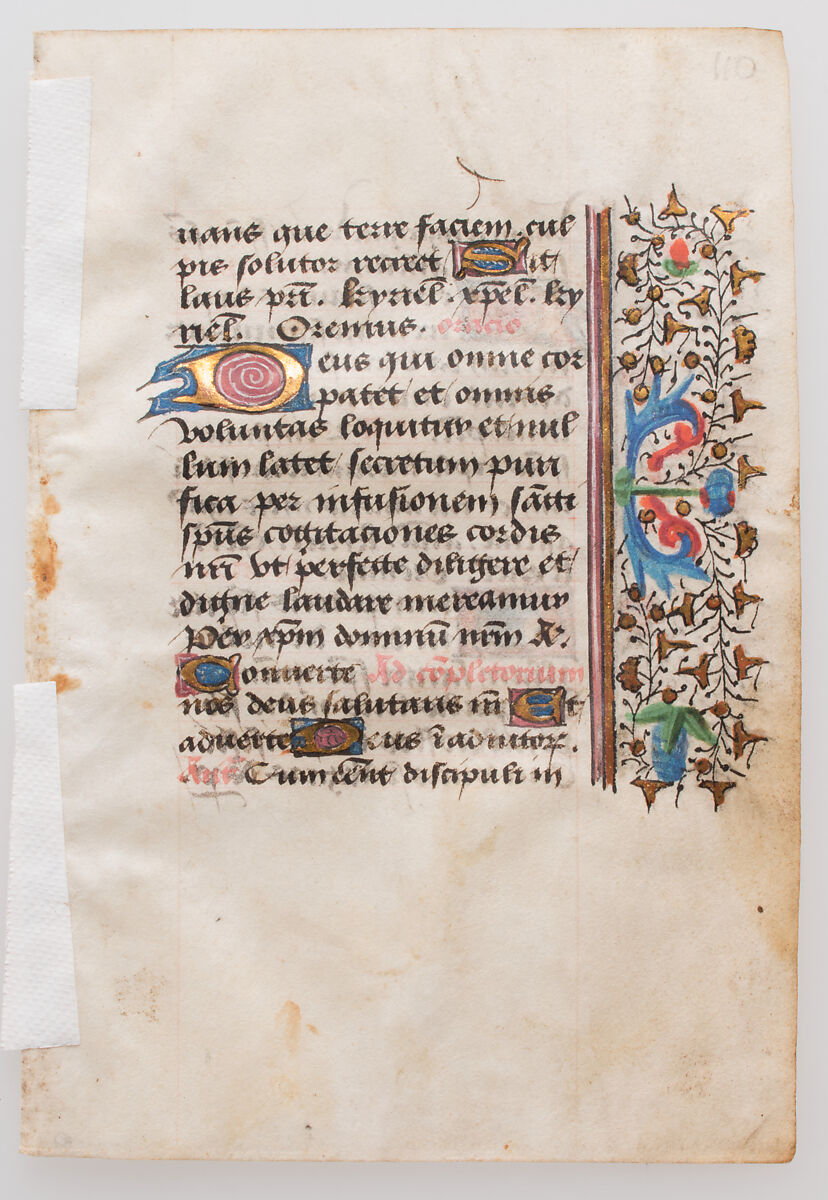 110
nans que terre faciem cul
pis solutor recreet Sit
laus pri. kyriel. xpel. ky
riel. Oremus. oracio
Deus qui omne cor
patet et omnis
voluntas loquitur et nul
lum latet secretum puri
fica per infusionem sancti
spus cogitaciones cordis
nri vt perfecte diligere et
digne laudare mereamur
Per xpm dominu nrm &.
Conuerte Ad copletorium
nos deus salutaris nr Et
aduerte Deus i adiutor.
Ant Cum essent discipuli in